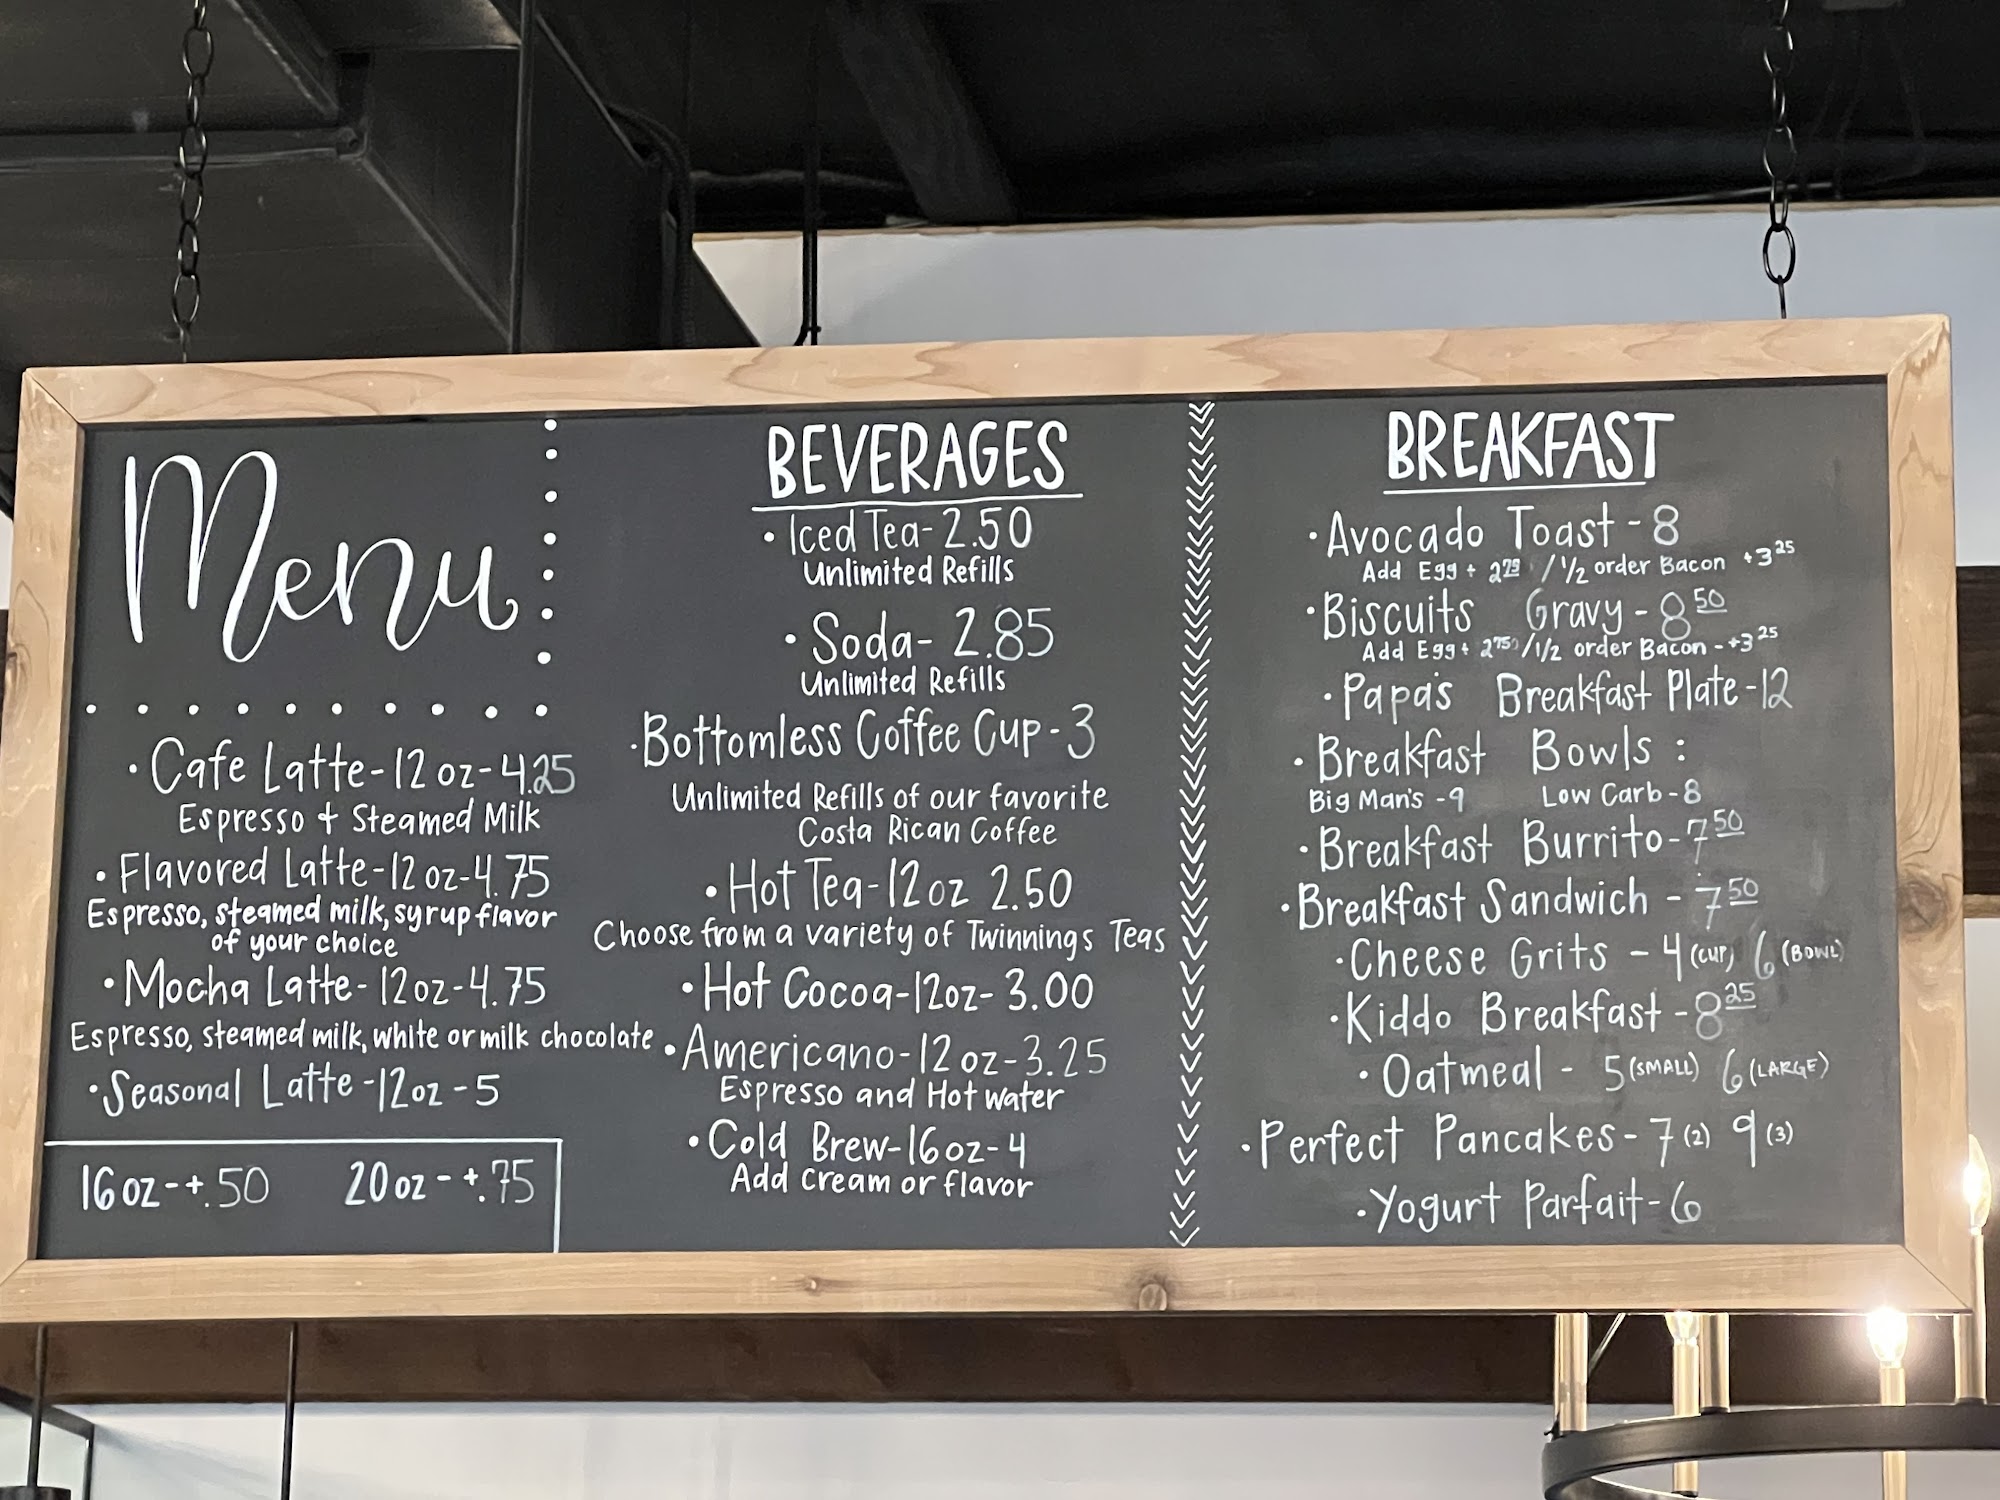 Menu
• Cafe Latte-12 oz-4.25
Espresso + Steamed Milk
• Flavored Latte-12 oz-4.75
Espresso, steamed milk, syrup flavor
of your choice
• Mocha Latte-12oz-4.75
Espresso, steamed milk, white or milk chocolate
• Seasonal Latte-12oz-5
16oz-+.50 20oz-+.75
BEVERAGES
• Iced Tea-2.50
Unlimited Refills
• Soda-2.85
Unlimited Refills
• Bottomless Coffee Cup-3
Unlimited Refills of our favorite
Costa Rican Coffee
• Hot Tea-12oz 2.50
Choose from a variety of Twinnings Teas
• Hot Cocoa-12oz-3.00
• Americano-12oz-3.25
Espresso and Hot water
• Cold Brew-16oz-4
Add cream or flavor
BREAKFAST
• Avocado Toast-8
Add Egg + 2 75 / 1/2 order Bacon +3 25
• Biscuits Gravy-8 50
Add Egg + 2 75 / 1/2 order Bacon-+3 25
• Papa's Breakfast Plate-12
• Breakfast Bowls :
Big Man's -9 Low Carb-8
• Breakfast Burrito-7 50
• Breakfast Sandwich - 7 50
• Cheese Grits - 4 (CUP) 6 (BOWL)
• Kiddo Breakfast-8 25
• Oatmeal - 5 (SMALL) 6 (LARGE)
• Perfect Pancakes-7 (2) 9 (3)
• Yogurt Parfait-6